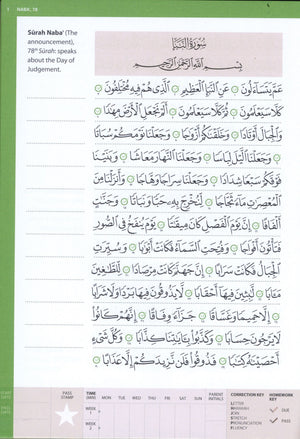 1 NABA', 78
Sūrah Naba' (The
announcement),
78th Sūrah: speaks
about the Day of
Judgement.
سُورَةُ النَّبَإِ
بِسْمِ اللَّهِ الرَّحْمَٰنِ الرَّحِيمِ
عَمَّ يَتَسَاءَلُونَ ۝ عَنِ النَّبَإِ الْعَظِيمِ ۝ الَّذِي هُمْ فِيهِ مُخْتَلِفُونَ ۝
كَلَّا سَيَعْلَمُونَ ۝ ثُمَّ كَلَّا سَيَعْلَمُونَ ۝ أَلَمْ نَجْعَلِ الْأَرْضَ مِهَادًا ۝
وَالْجِبَالَ أَوْتَادًا ۝ وَخَلَقْنَاكُمْ أَزْوَاجًا ۝ وَجَعَلْنَا نَوْمَكُمْ سُبَاتًا
۝ وَجَعَلْنَا اللَّيْلَ لِبَاسًا ۝ وَجَعَلْنَا النَّهَارَ مَعَاشًا ۝ وَبَنَيْنَا
فَوْقَكُمْ سَبْعًا شِدَادًا ۝ وَجَعَلْنَا سِرَاجًا وَهَّاجًا ۝ وَأَنزَلْنَا مِنَ
الْمُعْصِرَاتِ مَاءً ثَجَّاجًا ۝ لِّنُخْرِجَ بِهِ حَبًّا وَنَبَاتًا ۝ وَجَنَّاتٍ
أَلْفَافًا ۝ إِنَّ يَوْمَ الْفَصْلِ كَانَ مِيقَاتًا ۝ يَوْمَ يُنفَخُ فِي الصُّورِ
فَتَأْتُونَ أَفْوَاجًا ۝ وَفُتِحَتِ السَّمَاءُ فَكَانَتْ أَبْوَابًا ۝ وَسُيِّرَتِ
الْجِبَالُ فَكَانَتْ سَرَابًا ۝ إِنَّ جَهَنَّمَ كَانَتْ مِرْصَادًا ۝ لِّلطَّاغِينَ
مَآبًا ۝ لَّابِثِينَ فِيهَا أَحْقَابًا ۝ لَّا يَذُوقُونَ فِيهَا بَرْدًا وَلَا شَرَابًا
۝ إِلَّا حَمِيمًا وَغَسَّاقًا ۝ جَزَاءً وِفَاقًا ۝ إِنَّهُمْ كَانُوا
لَا يَرْجُونَ حِسَابًا ۝ وَكَذَّبُوا بِآيَاتِنَا كِذَّابًا ۝ وَكُلَّ شَيْءٍ
أَحْصَيْنَاهُ كِتَابًا ۝ فَذُوقُوا فَلَن نَّزِيدَكُمْ إِلَّا عَذَابًا ۝
START DATE
PASS DATE
PASS STAMP
TIME (MIN) MON TUE WED THU FRI SAT SUN
WEEK 1
WEEK 2
PARENT INITIALS
CORRECTION KEY
LETTER
HARAKAH
JOIN
STRETCH
PRONUNCIATION
FLUENCY
HOMEWORK KEY
DUE
PASS